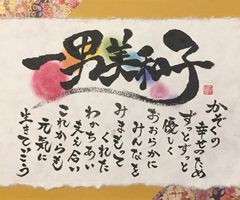 一男美和子
かぞくの
幸せのため
ずっとずっと
優しく
おおらかに
みんなを
みまもって
くれた
わかちあい
支え合い
これからも
元気に
生きていこう